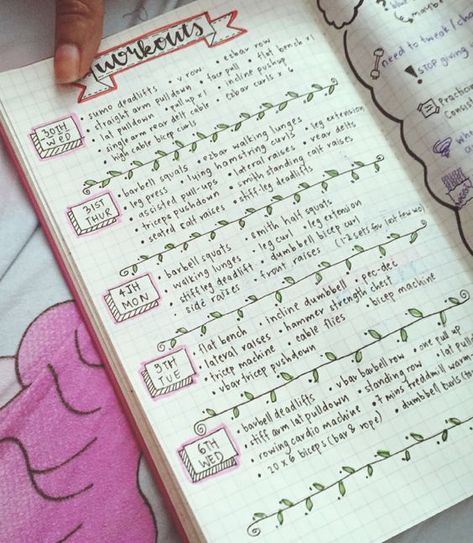 workouts
30TH WED
• sumo deadlifts • v row • ezbar row
• straight arm pulldown • face pull • flat bench x1
• lat pulldown • pull up x1 • incline pushup
• single arm rear delt cable • ezbar curls x 6
• high cable bicep curls
31ST THUR
• barbell squats • ezbar walking lunges • leg extension
• leg press • lying hamstring curls • rear delts
• assisted pull-ups • lateral raises
• triceps pushdown • smith standing calf raises
• seated calf raises • stiff leg deadlifts
4TH MON
• barbell squats • smith half squats
• walking lunges • leg curl • leg extension
• stiff leg deadlift • dumbbell bicep curl
• side raises • front raises (1-2 sets for last few wo)
5TH TUE
• flat bench • incline dumbbell • pec-dec
• lateral raises • hammer strength chest
• tricep machine • cable flies • bicep machine
• vbar tricep pushdown
6TH WED
• barbell deadlifts • vbar barbell row • one pull up
• stiff arm lat pulldown • standing row • lat pull
• rowing cardio machine • 7 mins treadmill warm
• 20 x 6 biceps (bar & rope) • dumbbell
need to tweak / c
stop giving
Practic